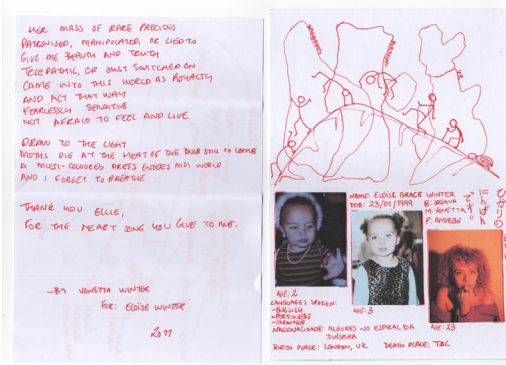 HER MASS OF RARE PRECIOUS
PATRONISED, MANIPULATED, OR LIED TO
GIVE ME BEAUTY AND TRUTH
TELEPATHIC, OR JUST SWITCHED ON
CAME INTO THIS WORLD AS ROYALTY
AND ACT THAT WAY
FEARLESSLY SENSITIVE
NOT AFRAID TO FEEL AND LIVE
DRAWN TO THE LIGHT
MOTHS DIE AT THE HEAT OF THE BULB STILL TO COME
A MULTI-COLOURED DRESS ENTERS MY WORLD
AND I FORGET TO BREATHE
THANK YOU ELLIE,
FOR THE HEART SONG YOU GIVE TO ME.
-BY VONETTA WINTER
FOR: ELOÏSE WINTER
2011
UK
NAME: ELOÏSE GRACE WINTER
DOB: 23/01/1999
B: JOSHUA
M: VONETTA
F: ANDREW
ひかりの
にんげん
です。
AGE: 2
AGE: 3
AGE: 23
LANGUAGES SPOKEN:
-ENGLISH
-PORTUGUESE
-JAPANESE
NACIONALIDADE: ALGURES NO ESPIRAL DA
DIÁSPORA
BIRTH PLACE: LONDON, UK
DEATH PLACE: TBC